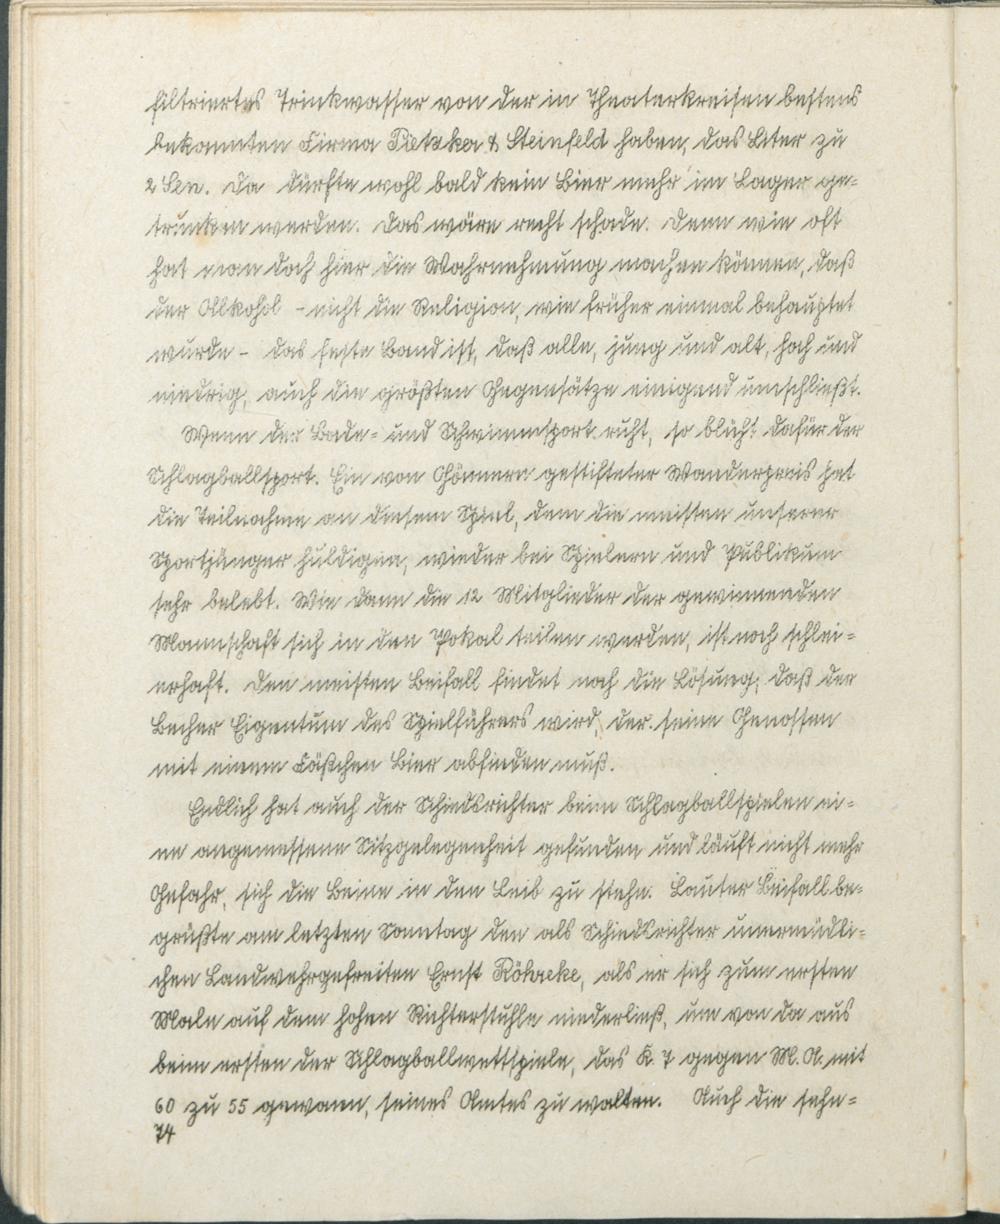 filtriertes Trinkwasser von der in Theaterkreisen bestens
bekannten Firma Pietzker & Steinfeld haben, das Liter zu
2 Sen. Da dürfte wohl bald kein Bier mehr im Lager ge-
trunken werden. Das wäre recht schade. Denn wie oft
hat man doch hier die Wahrnehmung machen können, daß
der Alkohol - nicht die Religion, wie früher einmal behauptet
wurde - das feste Band ist, daß alle, jung und alt, hoch und
niedrig, auch die größten Gegensätze einigend umschließt.
Wenn der Bade- und Schwimmsport ruht, so blüht dafür der
Schlagballsport. Ein von Gönnern gestifteter Wanderpreis hat
die Teilnahme an diesem Spiel, dem die meisten unserer
Sportjünger huldigen, wieder bei Spielern und Publikum
sehr belebt. Wie dann die 12 Mitglieder der gewinnenden
Mannschaft sich in den Pokal teilen werden, ist noch schlei-
erhaft. Den meisten Beifall findet noch die Lösung, daß der
Becher Eigentum des Spielführers wird, der seine Genossen
mit einem Fäßchen Bier abfinden muß.
Endlich hat auch der Schiedsrichter beim Schlagballspielen ei-
ne angemessene Sitzgelegenheit gefunden und läuft nicht mehr
Gefahr, sich die Beine in den Leib zu stehn. Lauter Beifall be-
grüßte am letzten Sonntag den als Schiedsrichter unermüdli-
chen Landwehrgefreiten Ernst Röhreke, als er sich zum ersten
Male auf dem hohen Richterstuhle niederließ, um von da aus
beim ersten der Schlagballwettspiele, das K. 7 gegen M. A. mit
60 zu 55 gewann, seines Amtes zu walten. Auch die sehn-
74